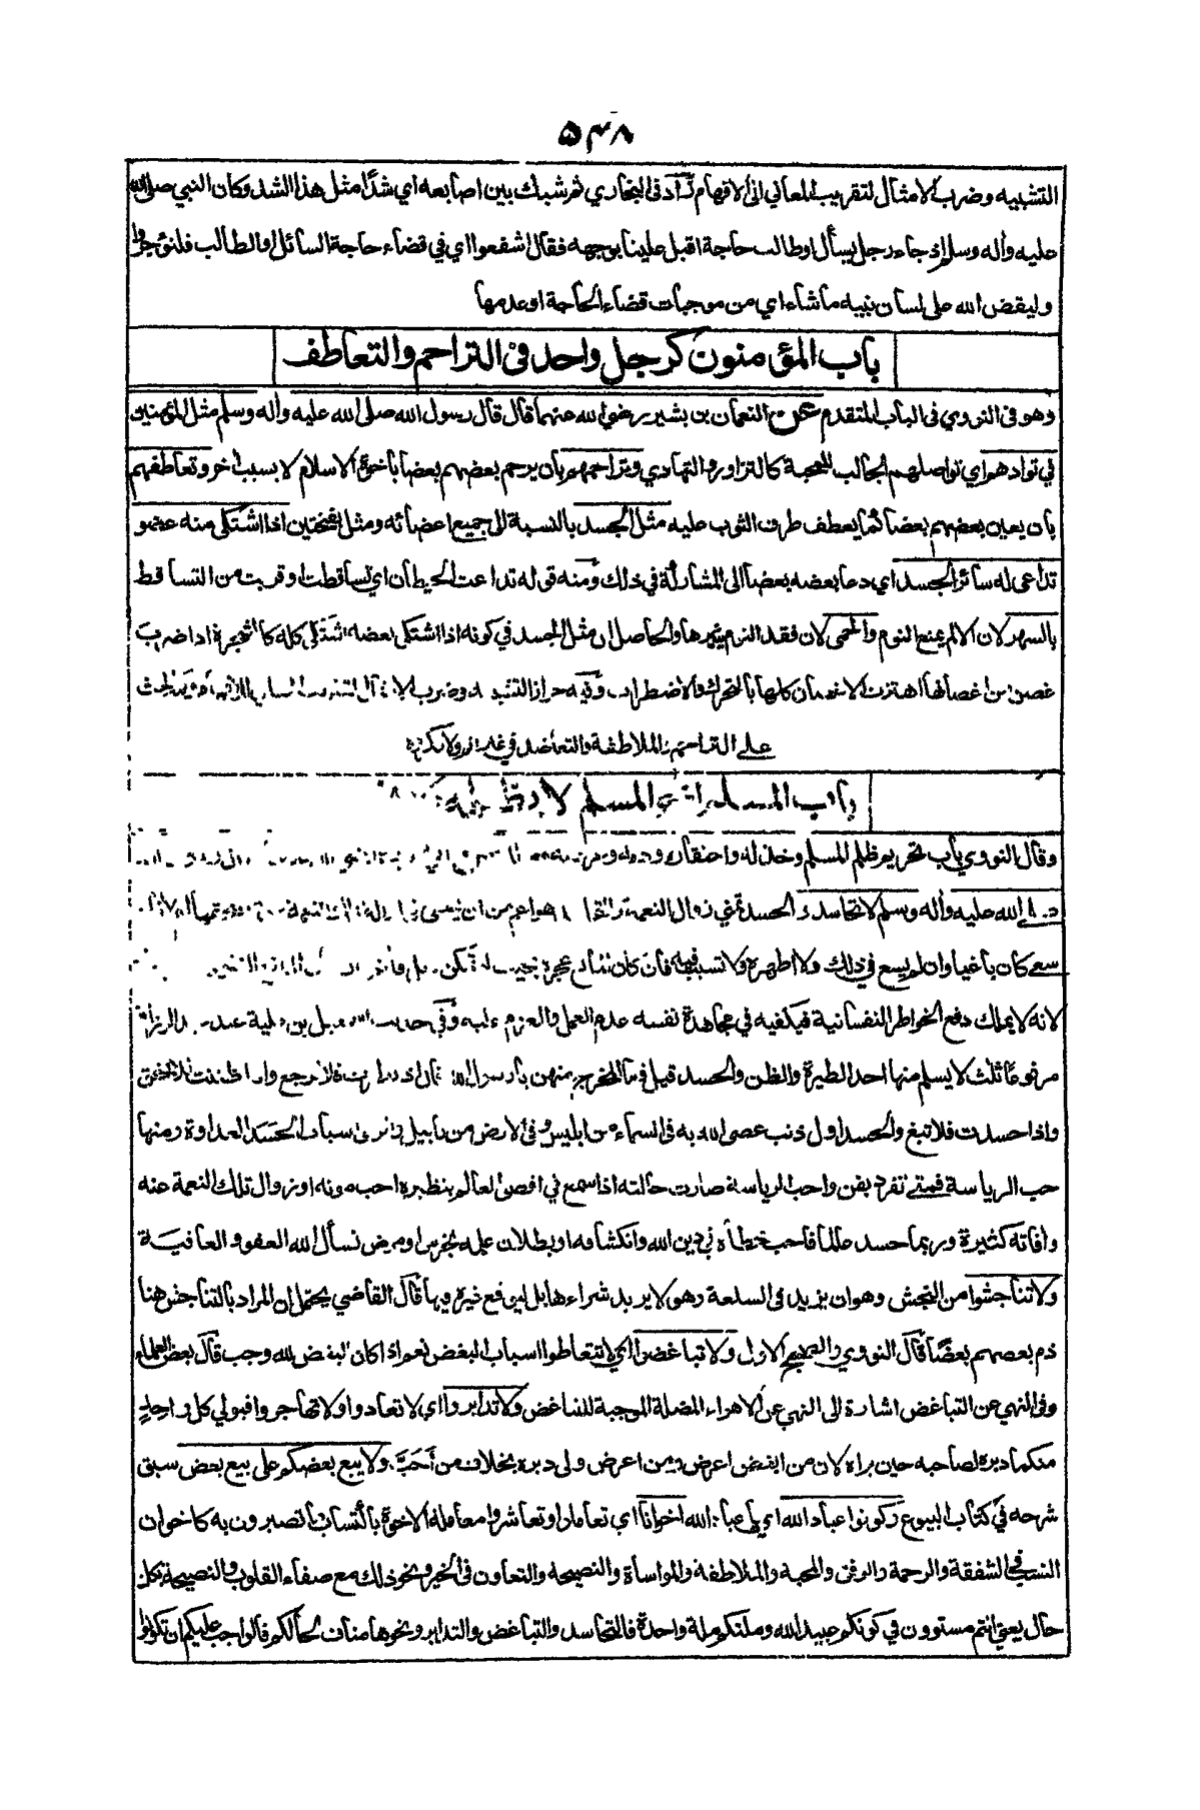 ۵۴۸
التشبيه وضرب الامثال لتقريب المعاني الى الافهام زاد في البخاري ثم شبك بين اصابعه اي شدا مثل هذا الشد وكان النبي صلى الله
عليه واله وسلم اذ جاء رجل يسأل او طالب حاجة اقبل علينا بوجهه فقال اشفعوا اي في قضاء حاجة السائل او الطالب فلتؤجروا
وليقض الله على لسان نبيه ما شاء اي من موجبات قضاء الحاجة او عدمها
باب المؤمنون كرجل واحد في التراحم والتعاطف
وهو في النووي في الباب المتقدم عن النعمان بن بشير رضي الله عنهما قال قال رسول الله صلى الله عليه واله وسلم مثل المؤمنين
في توادهم اي تواصلهم الجالب للمحبة كالتزاور والتهادي وتراحمهم بان يرحم بعضهم بعضا باخوة الاسلام لا بسبب اخر وتعاطفهم
بان يعين بعضهم بعضا كما يعطف طرف الثوب عليه مثل الجسد بالنسبة الى جميع اعضائه ومثل بفتحتين اذا اشتكى منه عضو
تداعى له سائر الجسد اي دعا بعضه بعضا الى المشاركة في ذلك ومنه قوله تداعت الحيطان اي تساقطت او قربت من التساقط
بالسهر لان الالم يمنع النوم والحمى لان فقد النوم يثيرها والحاصل ان مثل الجسد في كونه اذا اشتكى بعضه اشتكى كله كالشجرة اذا ضرب
غصن من اغصانها اهتزت الاغصان كلها بالتحرك والاضطراب وفيه جواز التشبيه وضرب الامثال
على التراحم والملاطفة والتعاضد في غير اثم ولا مكروه
باب المسلم اخو المسلم لا يظلمه ولا يخذله
وقال النووي باب تحريم ظلم المسلم وخذله واحتقاره ودمه
صلى الله عليه واله وسلم لا تحاسدوا الحسد تمني زوال النعمة
سعى كان باغيا وان لم يسع في ذلك ولا اظهره ولا تسبب فيه فان كان
لانه لا يملك دفع الخواطر النفسانية فيكفيه في مجاهدة نفسه عدم العمل والعزم عليه وفي حديث اسمعيل بن علية عند عبد الرزاق
مرفوعا ثلث لا يسلم منها احد الطيرة والظن والحسد قيل فما المخرج منهن يا رسول الله قال اذا تطيرت فلا ترجع واذا ظننت فلا تحقق
واذا حسدت فلا تبغ والحسد اول ذنب عصي الله به في السماء من ابليس وفي الارض من قابيل اسباب الحسد العداوة ومنها
حب الرياسة فمتى تفرد بفن واحب الرياسة صارت حالته اذا سمع في اقصى العالم بنظيره احب موته او زوال تلك النعمة عنه
وافاته كثيرة وربما حسد عالما فاحب خطأه في دين الله وانكشافه او بطلان علمه بخرس او مرض نسأل الله العفو والعافية
ولا تناجشوا من النجش وهو ان يزيد في السلعة وهو لا يريد شراءها بل ليوقع غيره فيها قال القاضي يحتمل ان المراد بالتناجش هنا
ذم بعضهم بعضا قال النووي والصحيح الاول ولا تباغضوا اي لا تتعاطوا اسباب البغض نعم اذا كان البغض لله وجب قال بعض العلماء
وفي النهي عن التباغض اشارة الى النهي عن الاهواء المضلة الموجبة للتباغض ولا تدابروا اي لا تعادوا ولا تهاجروا فيولي كل واحد
منكما دبره لصاحبه حين يراه لان من ابغض اعرض ومن اعرض ولى دبره بخلاف من أَحَبَّ ولا يبع بعضكم على بيع بعض سبق
شرحه في كتاب البيوع وكونوا عباد الله اي يا عباد الله اخوانا اي تعاملوا وتعاشروا معاملة الاخوة باكتساب ما تصيرون به كاخوان
النسب في الشفقة والرحمة والرفق والمحبة والملاطفة والمواساة والنصيحة والتعاون في الخير ونحو ذلك مع صفاء القلوب والنصيحة بكل
حال يعني انتم مستوون في كونكم عبيد الله وملتكم ملة واحدة فالتحاسد والتباغض والتدابر ونحوها مناف لحالكم فالواجب عليكم ان تكونوا